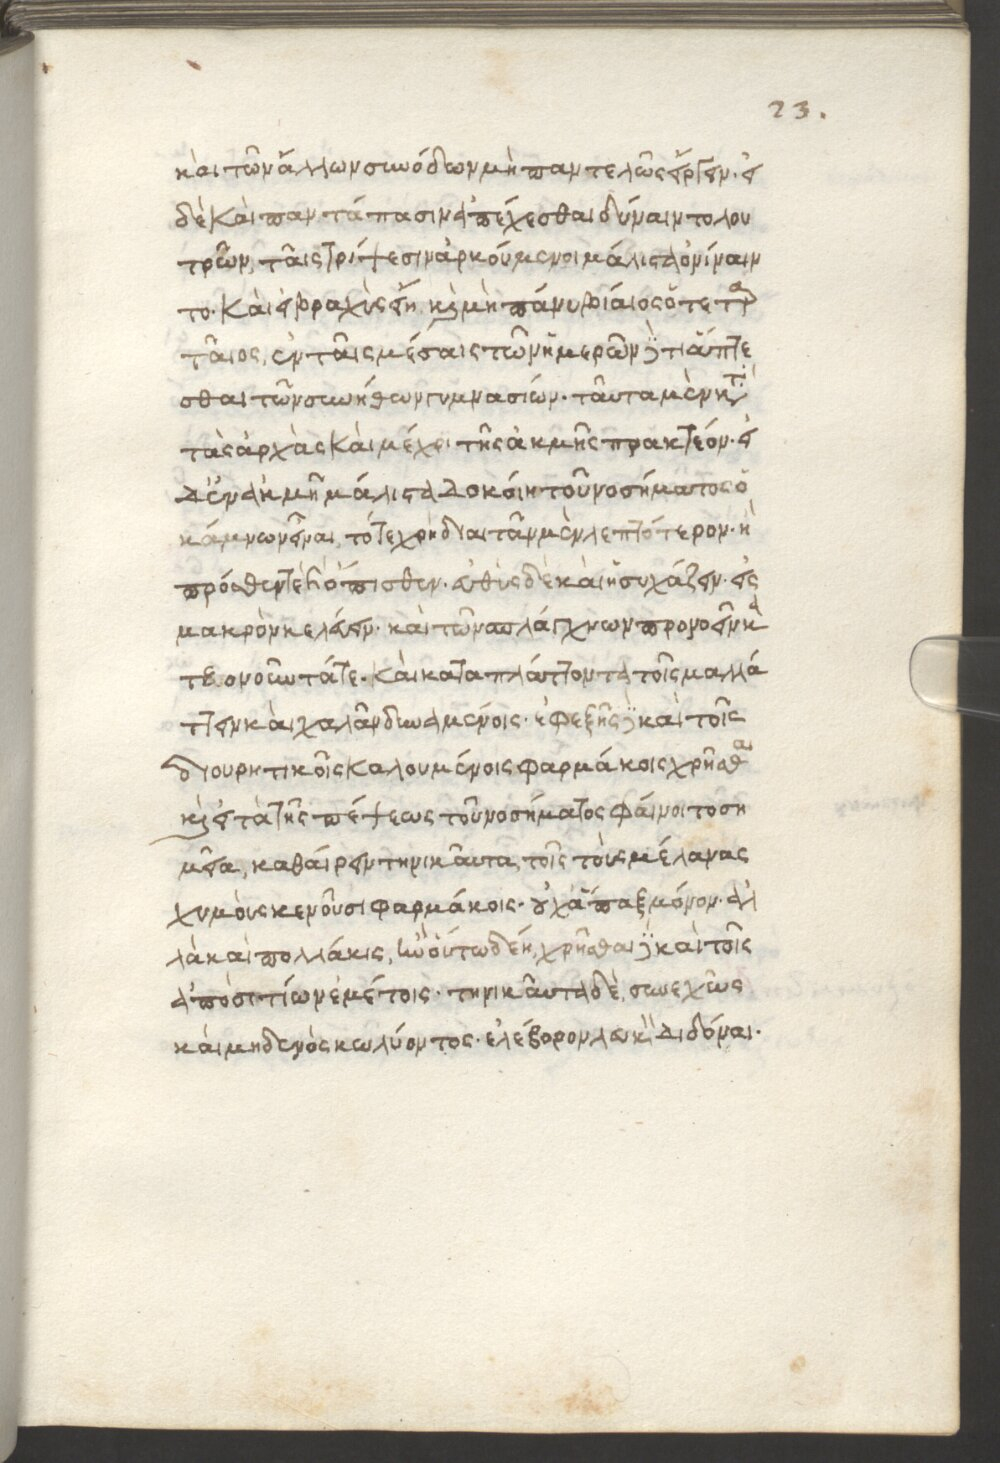 23.
καὶ τῶν ἄλλων συνόδων μὴ παντελῶς εἴργειν. εἰ
δὲ καὶ παντάπασιν ἀπέχεσθαι δύναιντο λου
τρῶν, ταῖς τρίψεσιν ἀρκούμενοι μάλιστα ὀνίναιν
το. καὶ εἰ βραχὺς εἴη καὶ μὴ πάνυ βίαιος ὅτε τεταρ
ταῖος, ἐν ταῖς μέσαις τῶν ἡμερῶν οὔτι ἅπτε
σθαι τῶν συνήθων γυμνασιών. ταῦτα μὲν κατὰ
τὰς ἀρχὰς καὶ μέχρι τῆς ἀκμῆς πρακτέον. εἰ
δ' ἐν ἀκμῆ μάλιστα δοκοίη τοῦ νοσήματος ὁ
κάμνων εἶναι, τότε χρὴ διαιτᾶν μὲν λεπτότερον. ἢ
πρόσθεν τὲ καὶ ὄπισθεν. αὖθις δὲ καὶ ἡσυχάζειν. εἰς
μακρὸν κελεύειν. καὶ τῶν σπλάγχνων προνοεῖν κατὰ
τὸ δυνατότατον. καὶ καταπλάττοντα τοῖς μαλλά
ττειν καὶ χαλᾶν δυναμένοις. ἐφεξῆς δὲ καὶ τοῖς
διουρητικοῖς καλουμένοις φαρμάκοις χρῆσθαι
καὶ εἰ τὰ τῆς πέψεως τοῦ νοσήματος φαίνοιτο ση
μεῖα, καθαίρειν τηνικαῦτα, τοῖς τοὺς μέλανας
χυμοὺς κενοῦσι φαρμάκοις. οὐχ ἅπαξ μόνον. ἀλ
λὰ καὶ πολλάκις, ἂν οὕτω δέη, χρῆσθαι δὲ καὶ τοῖς
ἀπὸ σιτίων ἐμέτοις. τηνικαῦτα δὲ, συνεχῶς
καὶ μηδενὸς κωλύοντος. ἐλέβορον λευκὸν διδόναι.